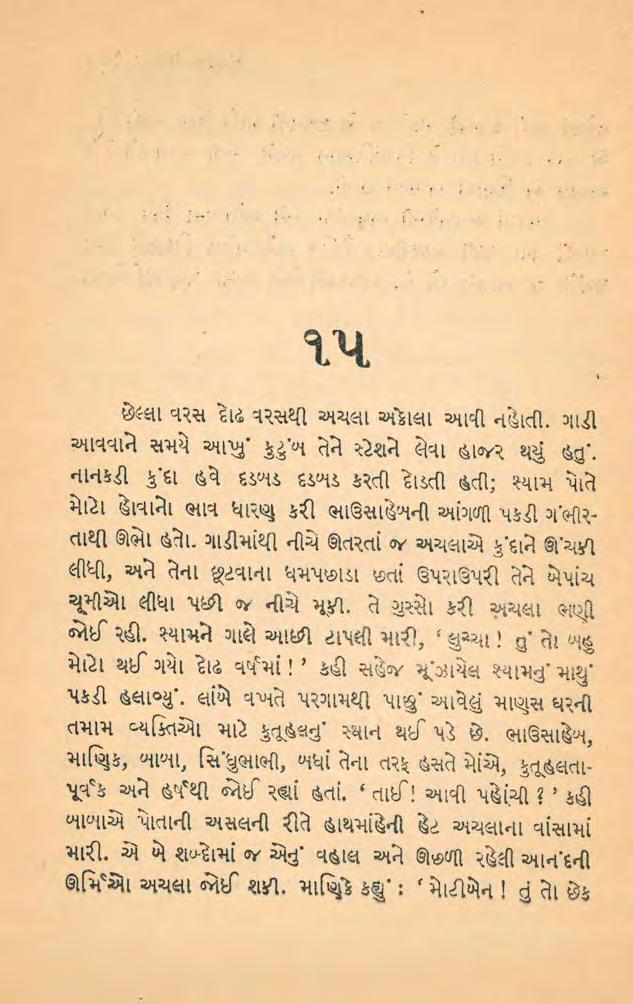 ૧૫
છેલ્લા વરસ દોઢ વરસથી અચલા અકોલા આવી નહોતી. ગાડી
આવવાને સમયે આખું કુટુંબ તેને સ્ટેશને લેવા હાજર થયું હતું.
નાનકડી કુંદા હવે દડબડ દડબડ કરતી દોડતી હતી; શ્યામ પોતે
મોટો હોવાનો ભાવ ધારણ કરી ભાઉસાહેબની આંગળી પકડી ગંભીર-
તાથી ઊભો હતો. ગાડીમાંથી નીચે ઊતરતાં જ અચલાએ કુંદાને ઊંચકી
લીધી, અને તેના છૂટવાના ધમપછાડા છતાં ઉપરાઉપરી તેને બેપાંચ
ચૂમીઓ લીધા પછી જ નીચે મૂકી. તે ગુસ્સો કરી અચલા ભણી
જોઈ રહી. શ્યામને ગાલે આછી ટાપલી મારી, ‘લુચ્ચા! તું તો બહુ
મોટો થઈ ગયો દોઢ વર્ષમાં!’ કહી સહેજ મૂંઝાયેલ શ્યામનું માથું
પકડી હલાવ્યું. લાંબે વખતે પરગામથી પાછું આવેલું માણસ ઘરની
તમામ વ્યક્તિઓ માટે કુતૂહલનું સ્થાન થઈ પડે છે. ભાઉસાહેબ,
માણિક, બાબા, સિંધુભાભી, બધાં તેના તરફ હસતે મોંએ, કુતૂહલતા-
પૂર્વક અને હર્ષથી જોઈ રહ્યાં હતાં. ‘તાઈ! આવી પહોંચી?’ કહી
બાબાએ પોતાની અસલની રીતે હાથમાંહેની હેટ અચલાના વાંસામાં
મારી. એ બે શબ્દોમાં જ એનું વહાલ અને ઊછળી રહેલી આનંદની
ઊર્મિઓ અચલા જોઈ શકી. માણિકે કહ્યું : ‘મોટીબેન! તું તો છેક